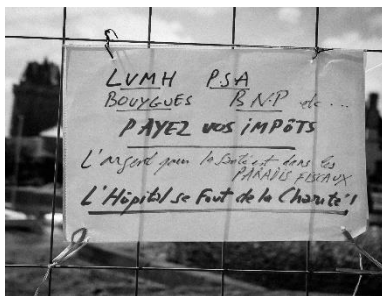 LVMH PSA
BOUYGUES BNP etc...
PAYEZ VOS IMPÔTS
L'argent pour la santé est dans les
PARADIS FISCAUX
L'Hôpital se Fout de la Charité!